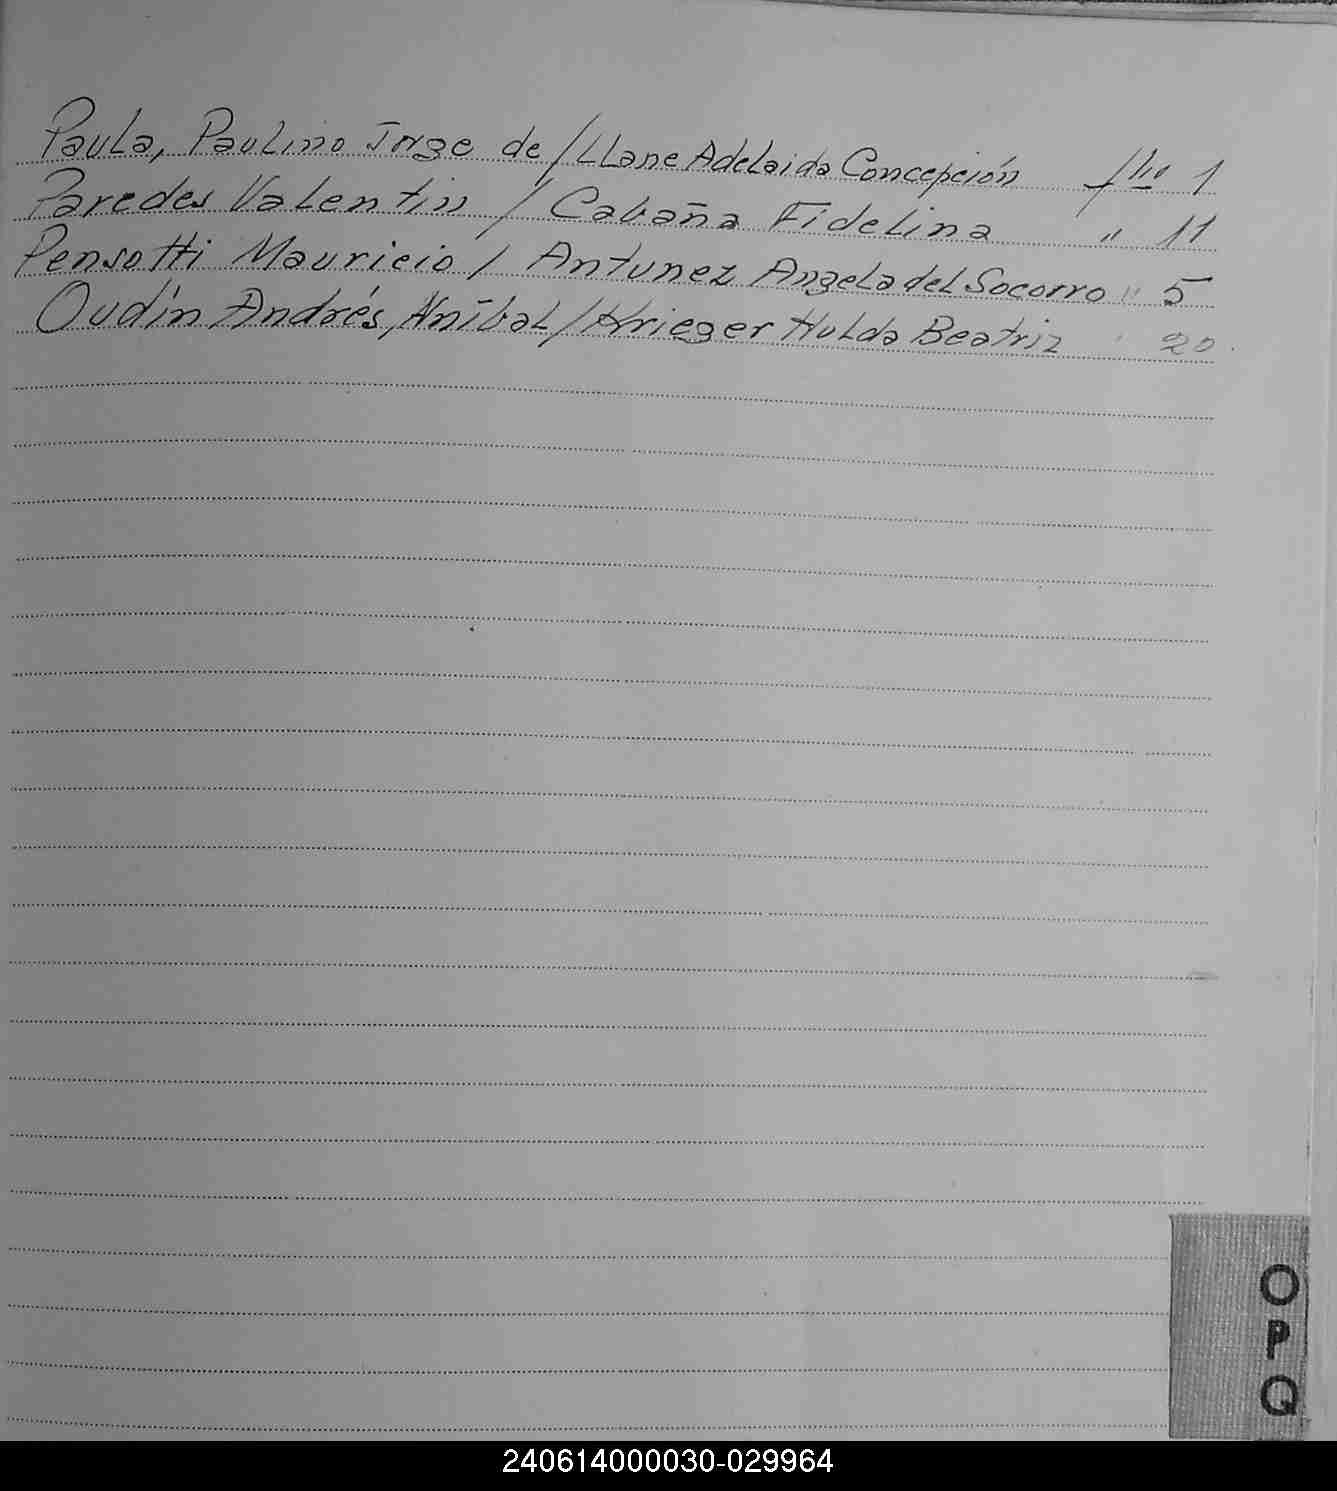 Paula, Paulino Jorge de / Llane Adelaida Concepción flio 1
Paredes Valentin / Cabaña Fidelina " 11
Pensotti Mauricio / Antunez Angela del Socorro " 5
Oudín Andrés, Aníbal / Krieger Hulda Beatriz " 20
O
P
Q
240614000030-029964